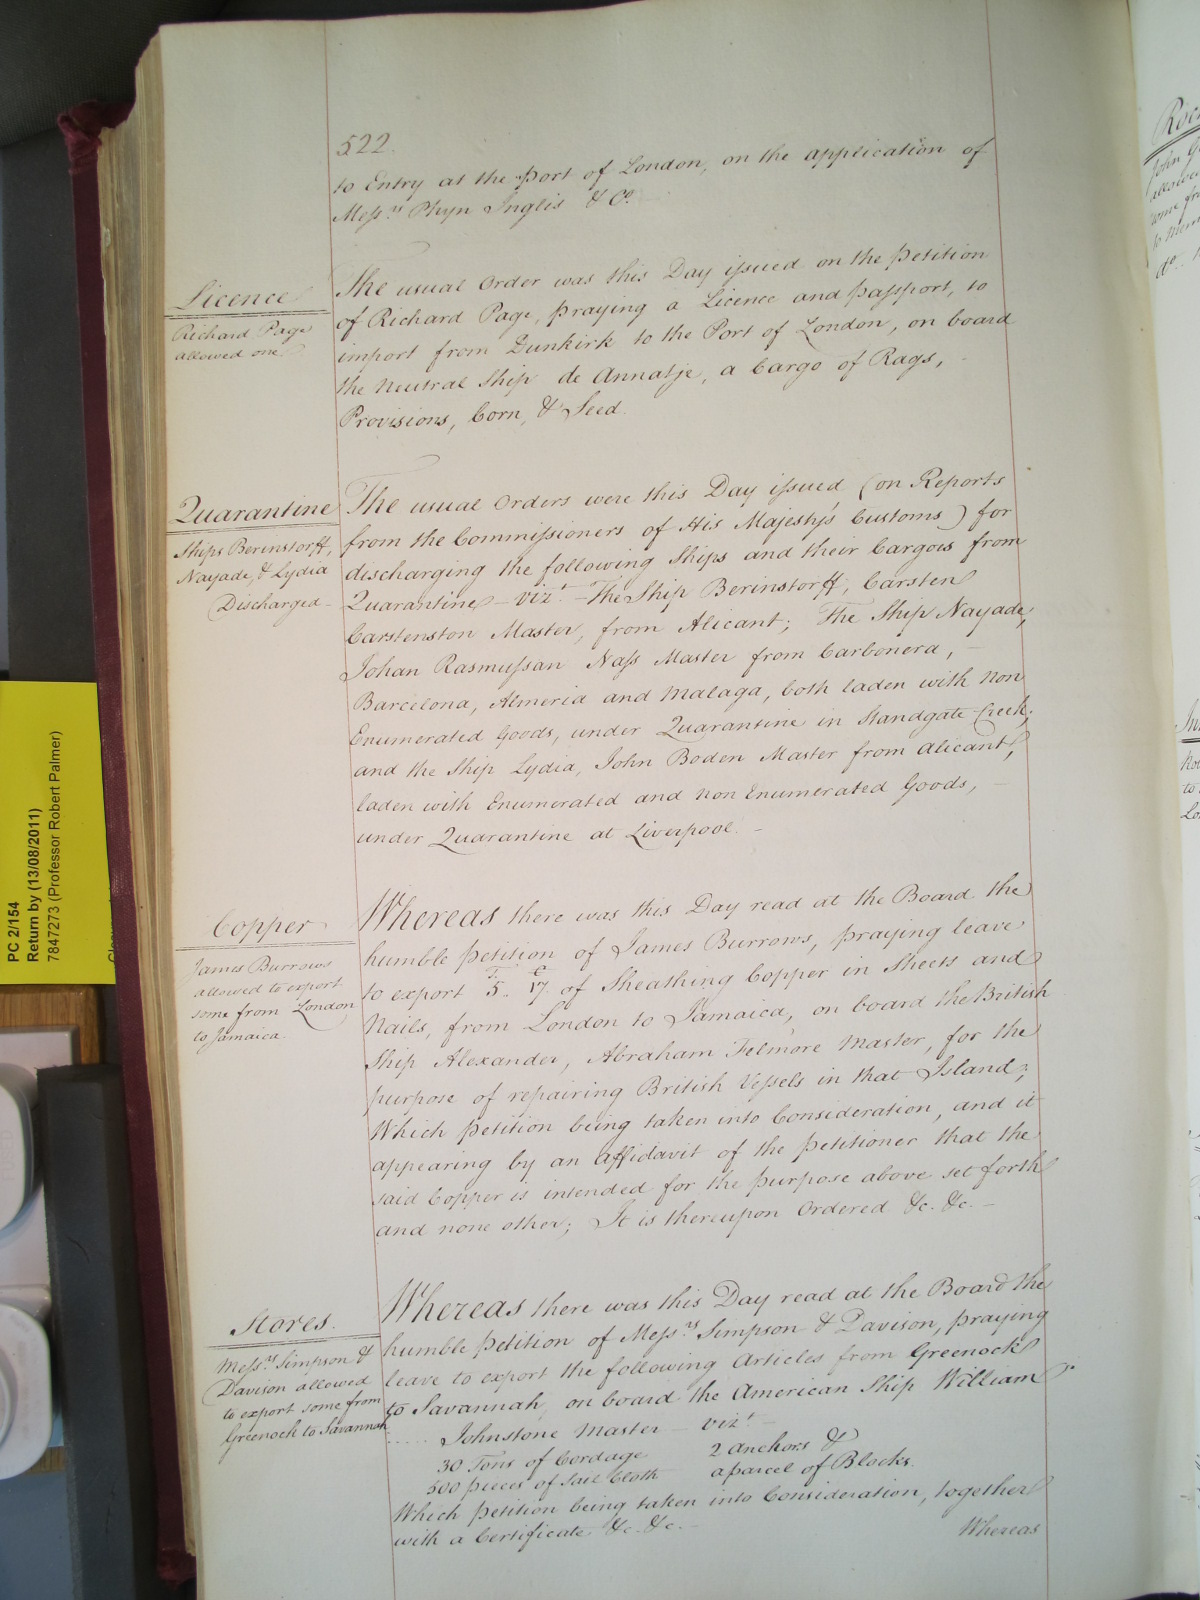 522.
to Entry at the Port of London, on the application of
Mess.rs Phyn Inglis & Co.
Licence
Richard Page
allowed one
The usual Order was this Day issued on the Petition
of Richard Page, praying a Licence and passport, to
import from Dunkirk to the Port of London, on board
the Neutral Ship de Annatje, a Cargo of Rags,
Provisions, Corn, & Seed.
Quarantine
Ships Berinstorff,
Nayade, & Lydia
Discharged -
The usual Orders were this Day issued (on Reports
from the Commissioners of His Majesty's Customs) for
discharging the following Ships and their Cargoes from
Quarantine - vizt. - The Ship Berinstorff, Carsten
Carstenston Master, from Alicant; The Ship Nayade,
Johan Rasmussan Nass Master from Carbonera, -
Barcelona, Almeria and Malaga, both laden with Non
Enumerated Goods, under Quarantine in Standgate Creek;
and the Ship Lydia, John Boden Master from Alicant,
laden with Enumerated and Non Enumerated Goods, -
under Quarantine at Liverpool. -
Copper
James Burrows
allowed to export
some from London
to Jamaica.
Whereas there was this Day read at the Board the
humble Petition of James Burrows, praying leave
to export T. 5. C. 17 of Sheathing Copper in Sheets and
Nails, from London to Jamaica, on board the British
Ship Alexander, Abraham Telmore Master, for the
purpose of repairing British Vessels in that Island;
Which Petition being taken into Consideration, and it
appearing by an Affidavit of the Petitioner that the
said Copper is intended for the purpose above set forth
and none other; It is thereupon Ordered &c. &c. -
Stores.
Mess.rs Simpson &
Davison allowed
to export some from
Greenock to Savannah
Whereas there was this Day read at the Board the
humble Petition of Mess.rs Simpson & Davison, praying
leave to export the following Articles from Greenock
to Savannah, on board the American Ship William
..... Johnstone Master vizt. -
30 Tons of Cordage 2 Anchors &
500 pieces of Sail Cloth a parcel of Blocks.
Which Petition being taken into Consideration, together
with a Certificate &c. &c. -
Whereas
PC 2/154
Return by (13/08/2011)
7847273 (Professor Robert Palmer)